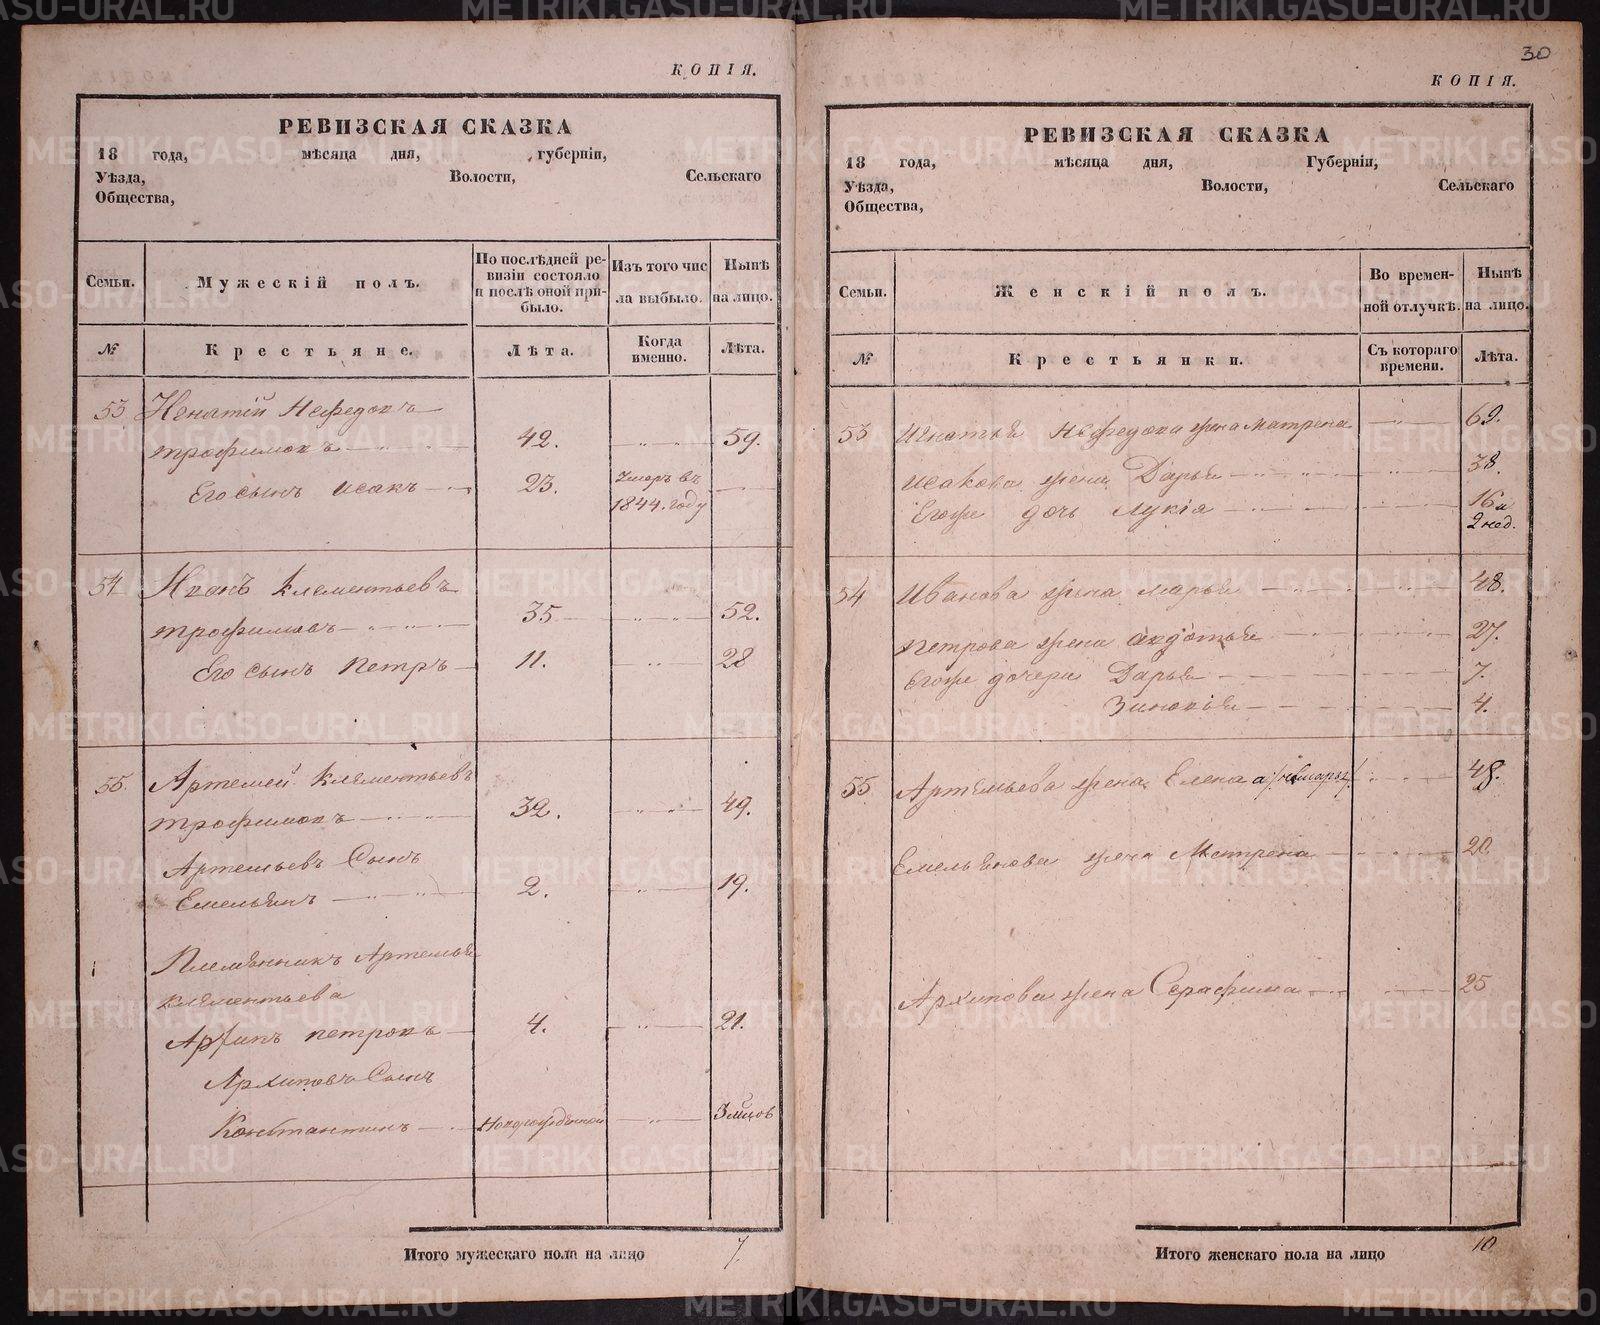 КОПІЯ.
РЕВИЗСКАЯ СКАЗКА
18 года, мѣсяца дня, губерніи,
Уѣзда, Волости, Сельскаго
Общества,
Семьи. Мужескій полъ. По послѣдней ревизіи состояло и послѣ оной прибыло. Изъ того числа выбыло. Нынѣ на лицо.
№ Крестьяне. Лѣта. Когда именно. Лѣта.
53 Игнатій Нефедовъ
трофимовъ 42. 59.
Его сынъ исакъ 23. Умеръ въ
1844. году
54 Иванъ Клементьевъ
трофимовъ 35 52.
Его сынъ петръ 11. 28
55. Артемей Клементьевъ
трофимовъ 32. 49.
Артемьевъ Сынъ
Емельянъ 2. 19.
Племянникъ Артемья
клементьева
Архипъ петровъ 4. 21.
Архиповъ Сынъ
Константинъ Новорожденной 3 мцов
Итого мужескаго пола на лицо 7.
30
КОПІЯ.
РЕВИЗСКАЯ СКАЗКА
18 года, мѣсяца дня, Губерніи,
Уѣзда, Волости, Сельскаго
Общества,
Семьи. Женскій полъ. Во временной отлучкѣ. Нынѣ на лицо.
№ Крестьянки. Съ котораго времени. Лѣта.
53 Игнатья Нефедова жена матрена 69.
исакова жена Дарья 38.
Егоже дочь лукія 16 и
2 нед.
54 Иванова жена марья 48.
петрова жена авдотья 27.
Егоже дочери Дарья 7.
Зиновія 4.
55 Артемьева жена Елена 48.
Емельянова жена Матрена 20.
Архипова жена Серафима 25
Итого женскаго пола на лицо 10
METRIKI.GASO-URAL.RU